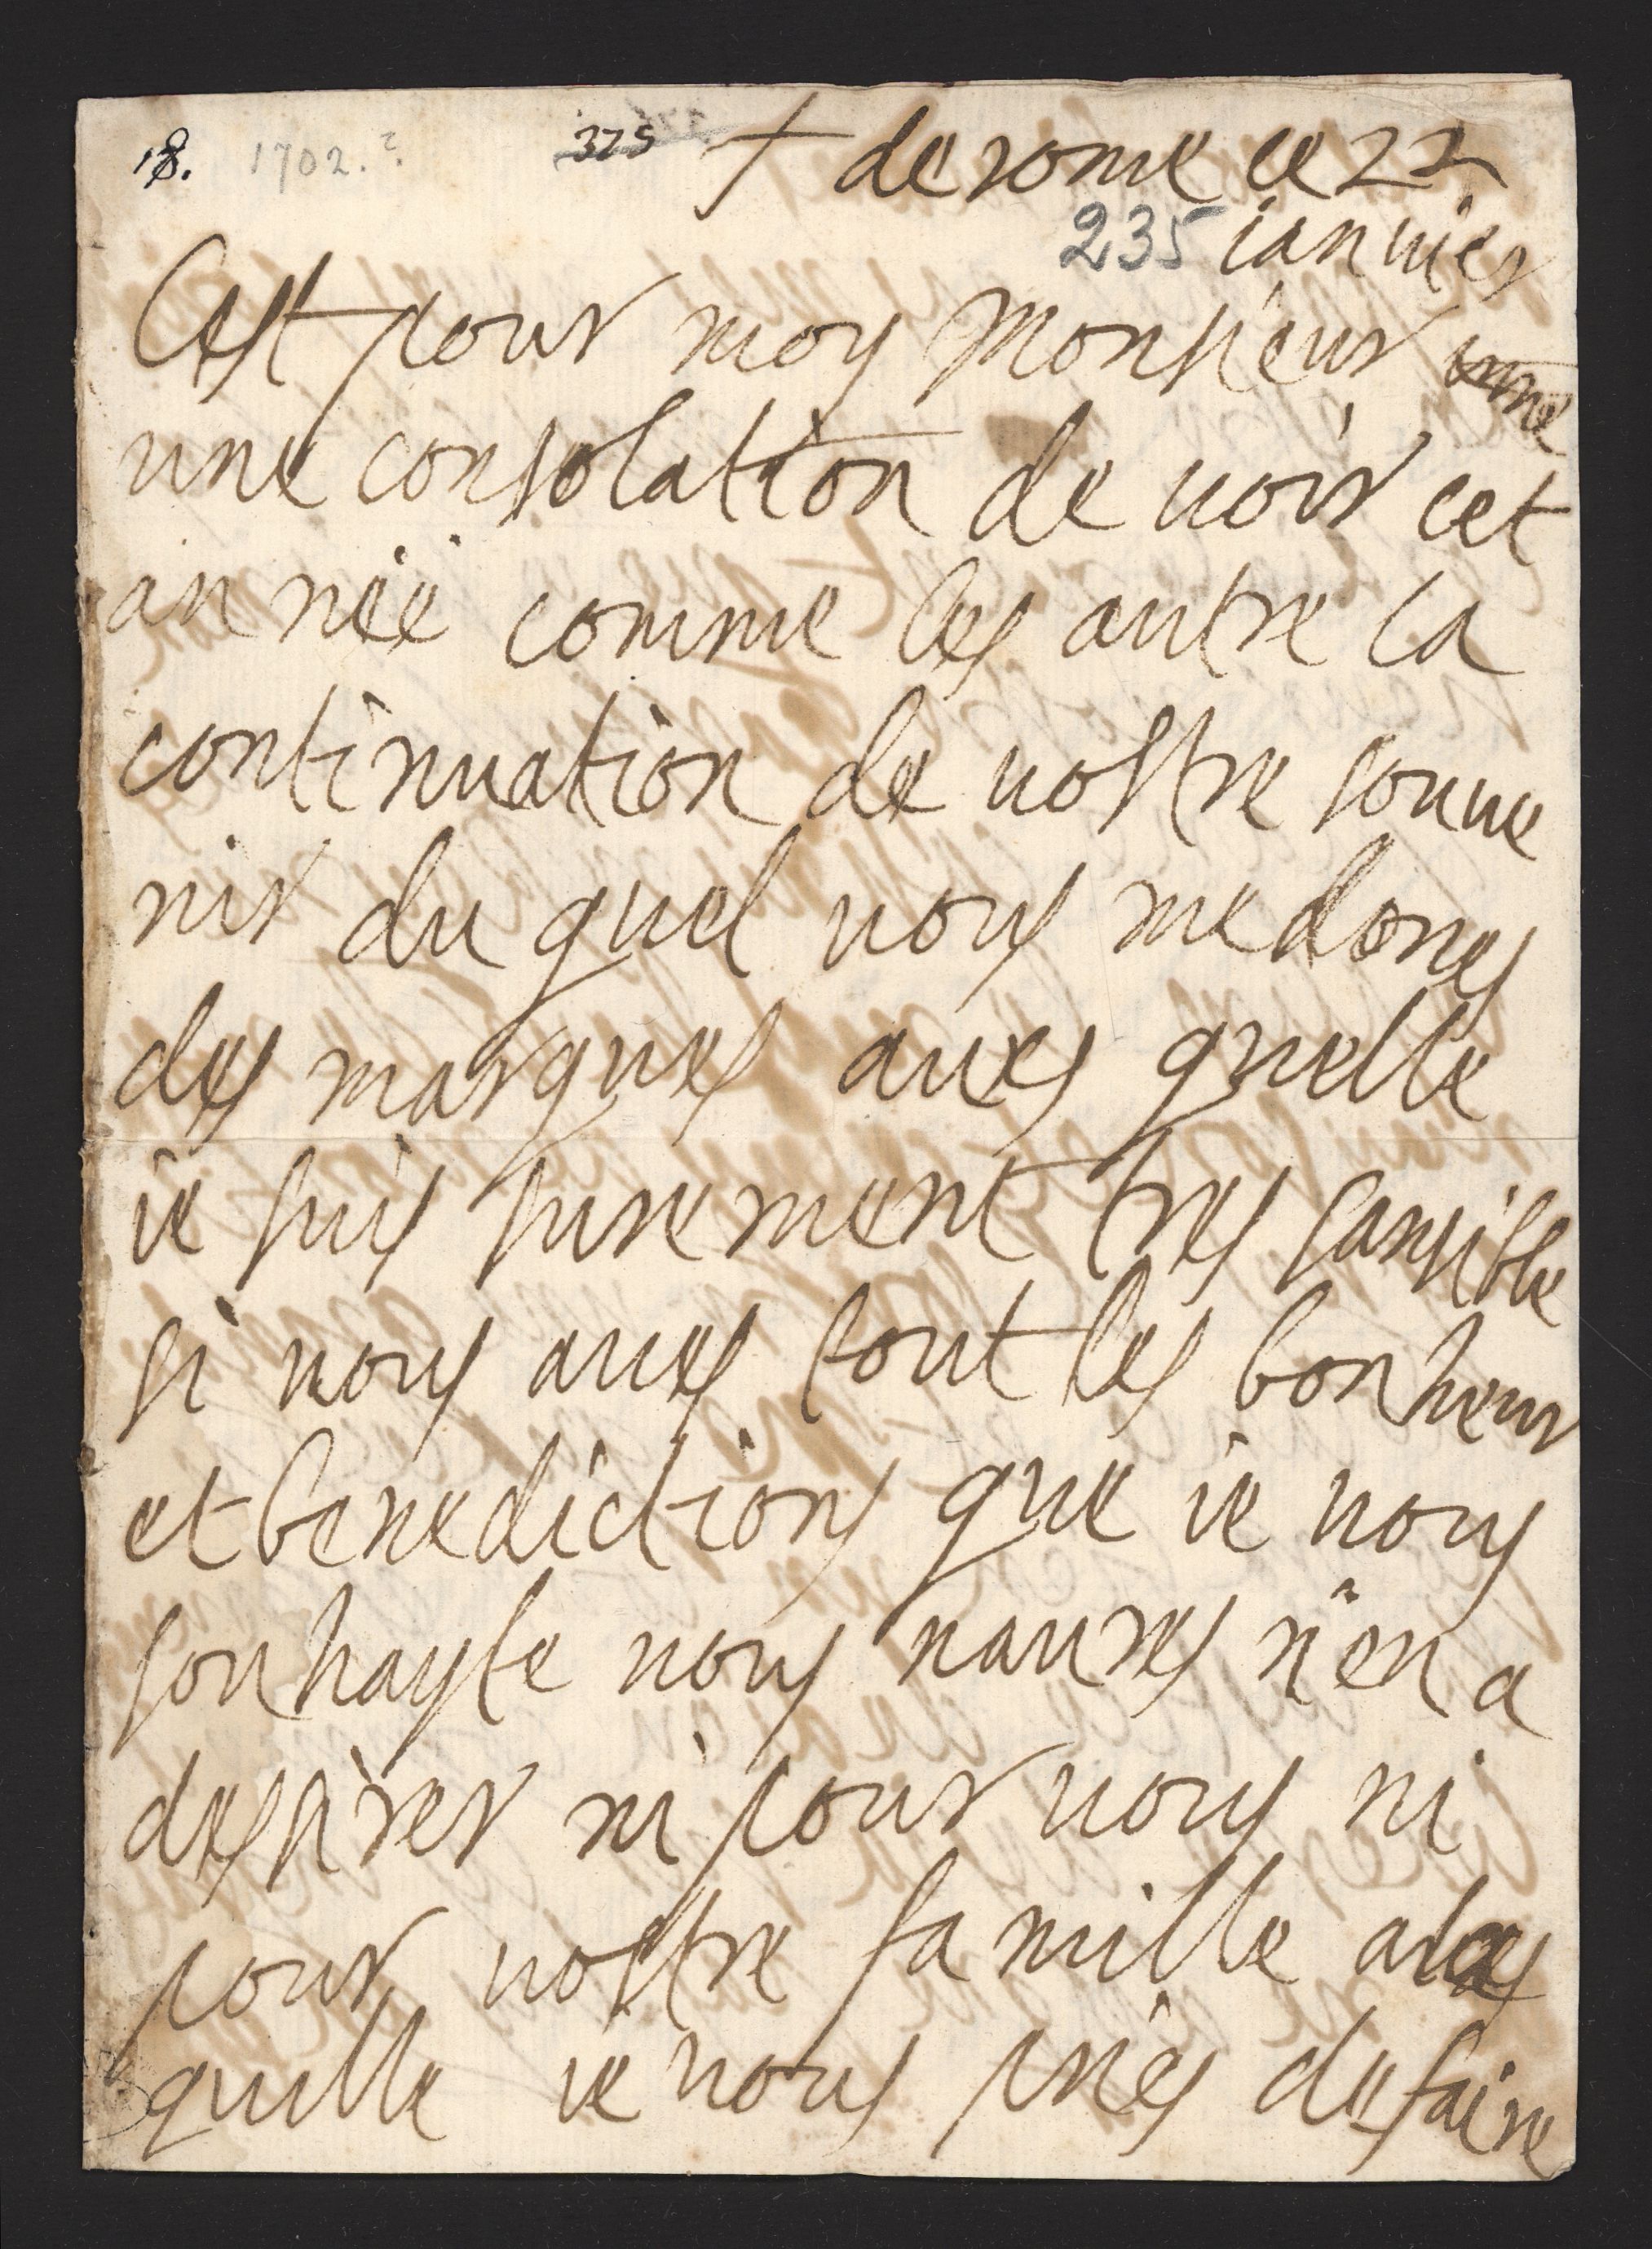 18. 1702.? 325 † de rome ce 22
235 ianuier
Cest pour moy Monsieur une
une consolation de uoir cet
an née comme les autre la
continuation de uostre souue
nir du quel uous me dones
des marques aues quelle
ie suis surement tres sansible
si uous aues tout les bonheur
et benedictions que ie uous
souhayte uous naures n'en a
desirer ni pour uous ni
pour uostre famille a la
quelle ie uous pries de faire